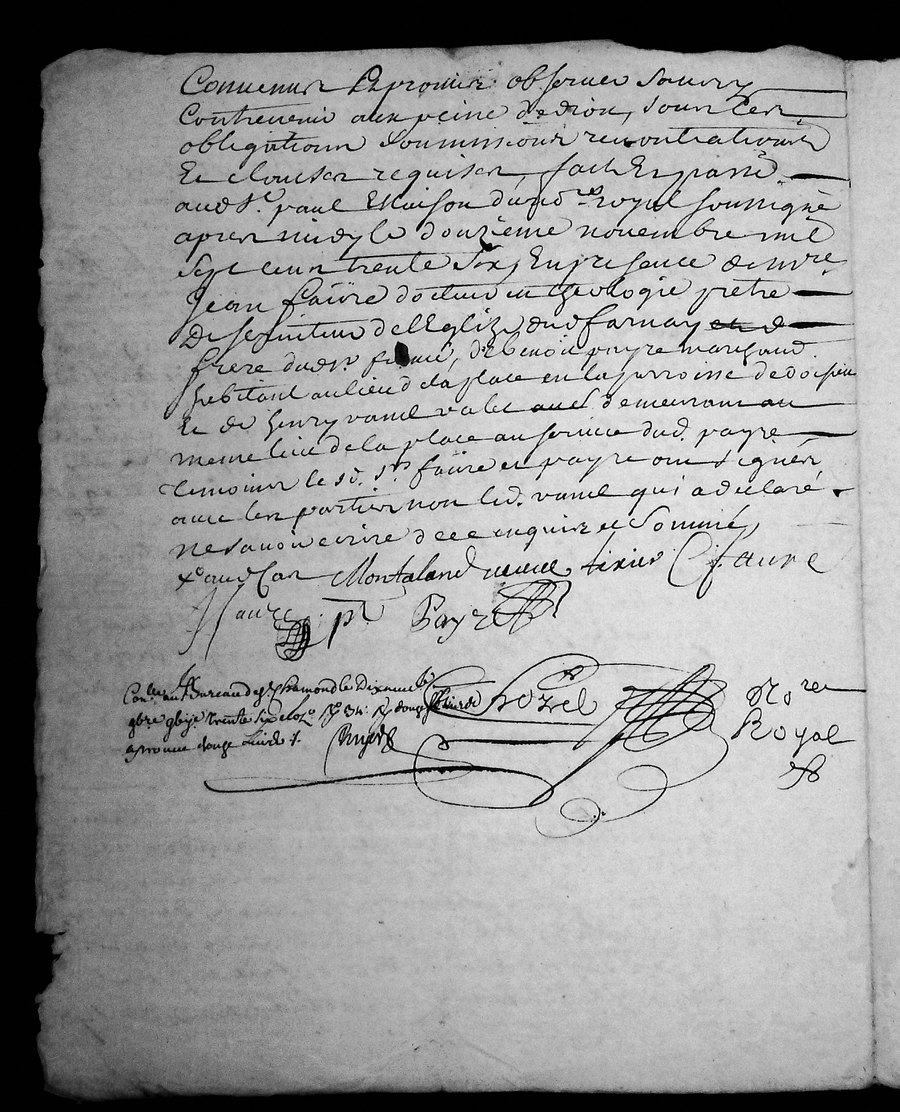 Convenu Et promis observer sans y
Contrevenir aux peine de droit, sous Les
obligations Soumissions renontiations
Et clauses requises, fait Et passé
aud St. paul Maison dud no.re Royal soussigné
apres midy le douzieme novembre mil
sept cens trente Six, En presence de m.re
Jean faure docteur en theologie pretre
De l'Eglize dud farnay
frere dud sr. faure, Sr. benoit payre marchand
habitant au lieu de la place en la parroisse de doizieu
Et de henry valet demeurant au
meme lieu de la place au service dud. payre
temoins le sd. Srs. faure et payre ont signés
avec les parties non led. qui a declaré
ne savoir ecrire de ce enquis et Sommé,
Montaland veuve tixier C faure
faure ptre Payre
Con.lé au Bureau de St Chamond le Dix neuf
9bre 1736 trente six fo. 34. R douze
a prouvé douze
Chozel No.re
Royal